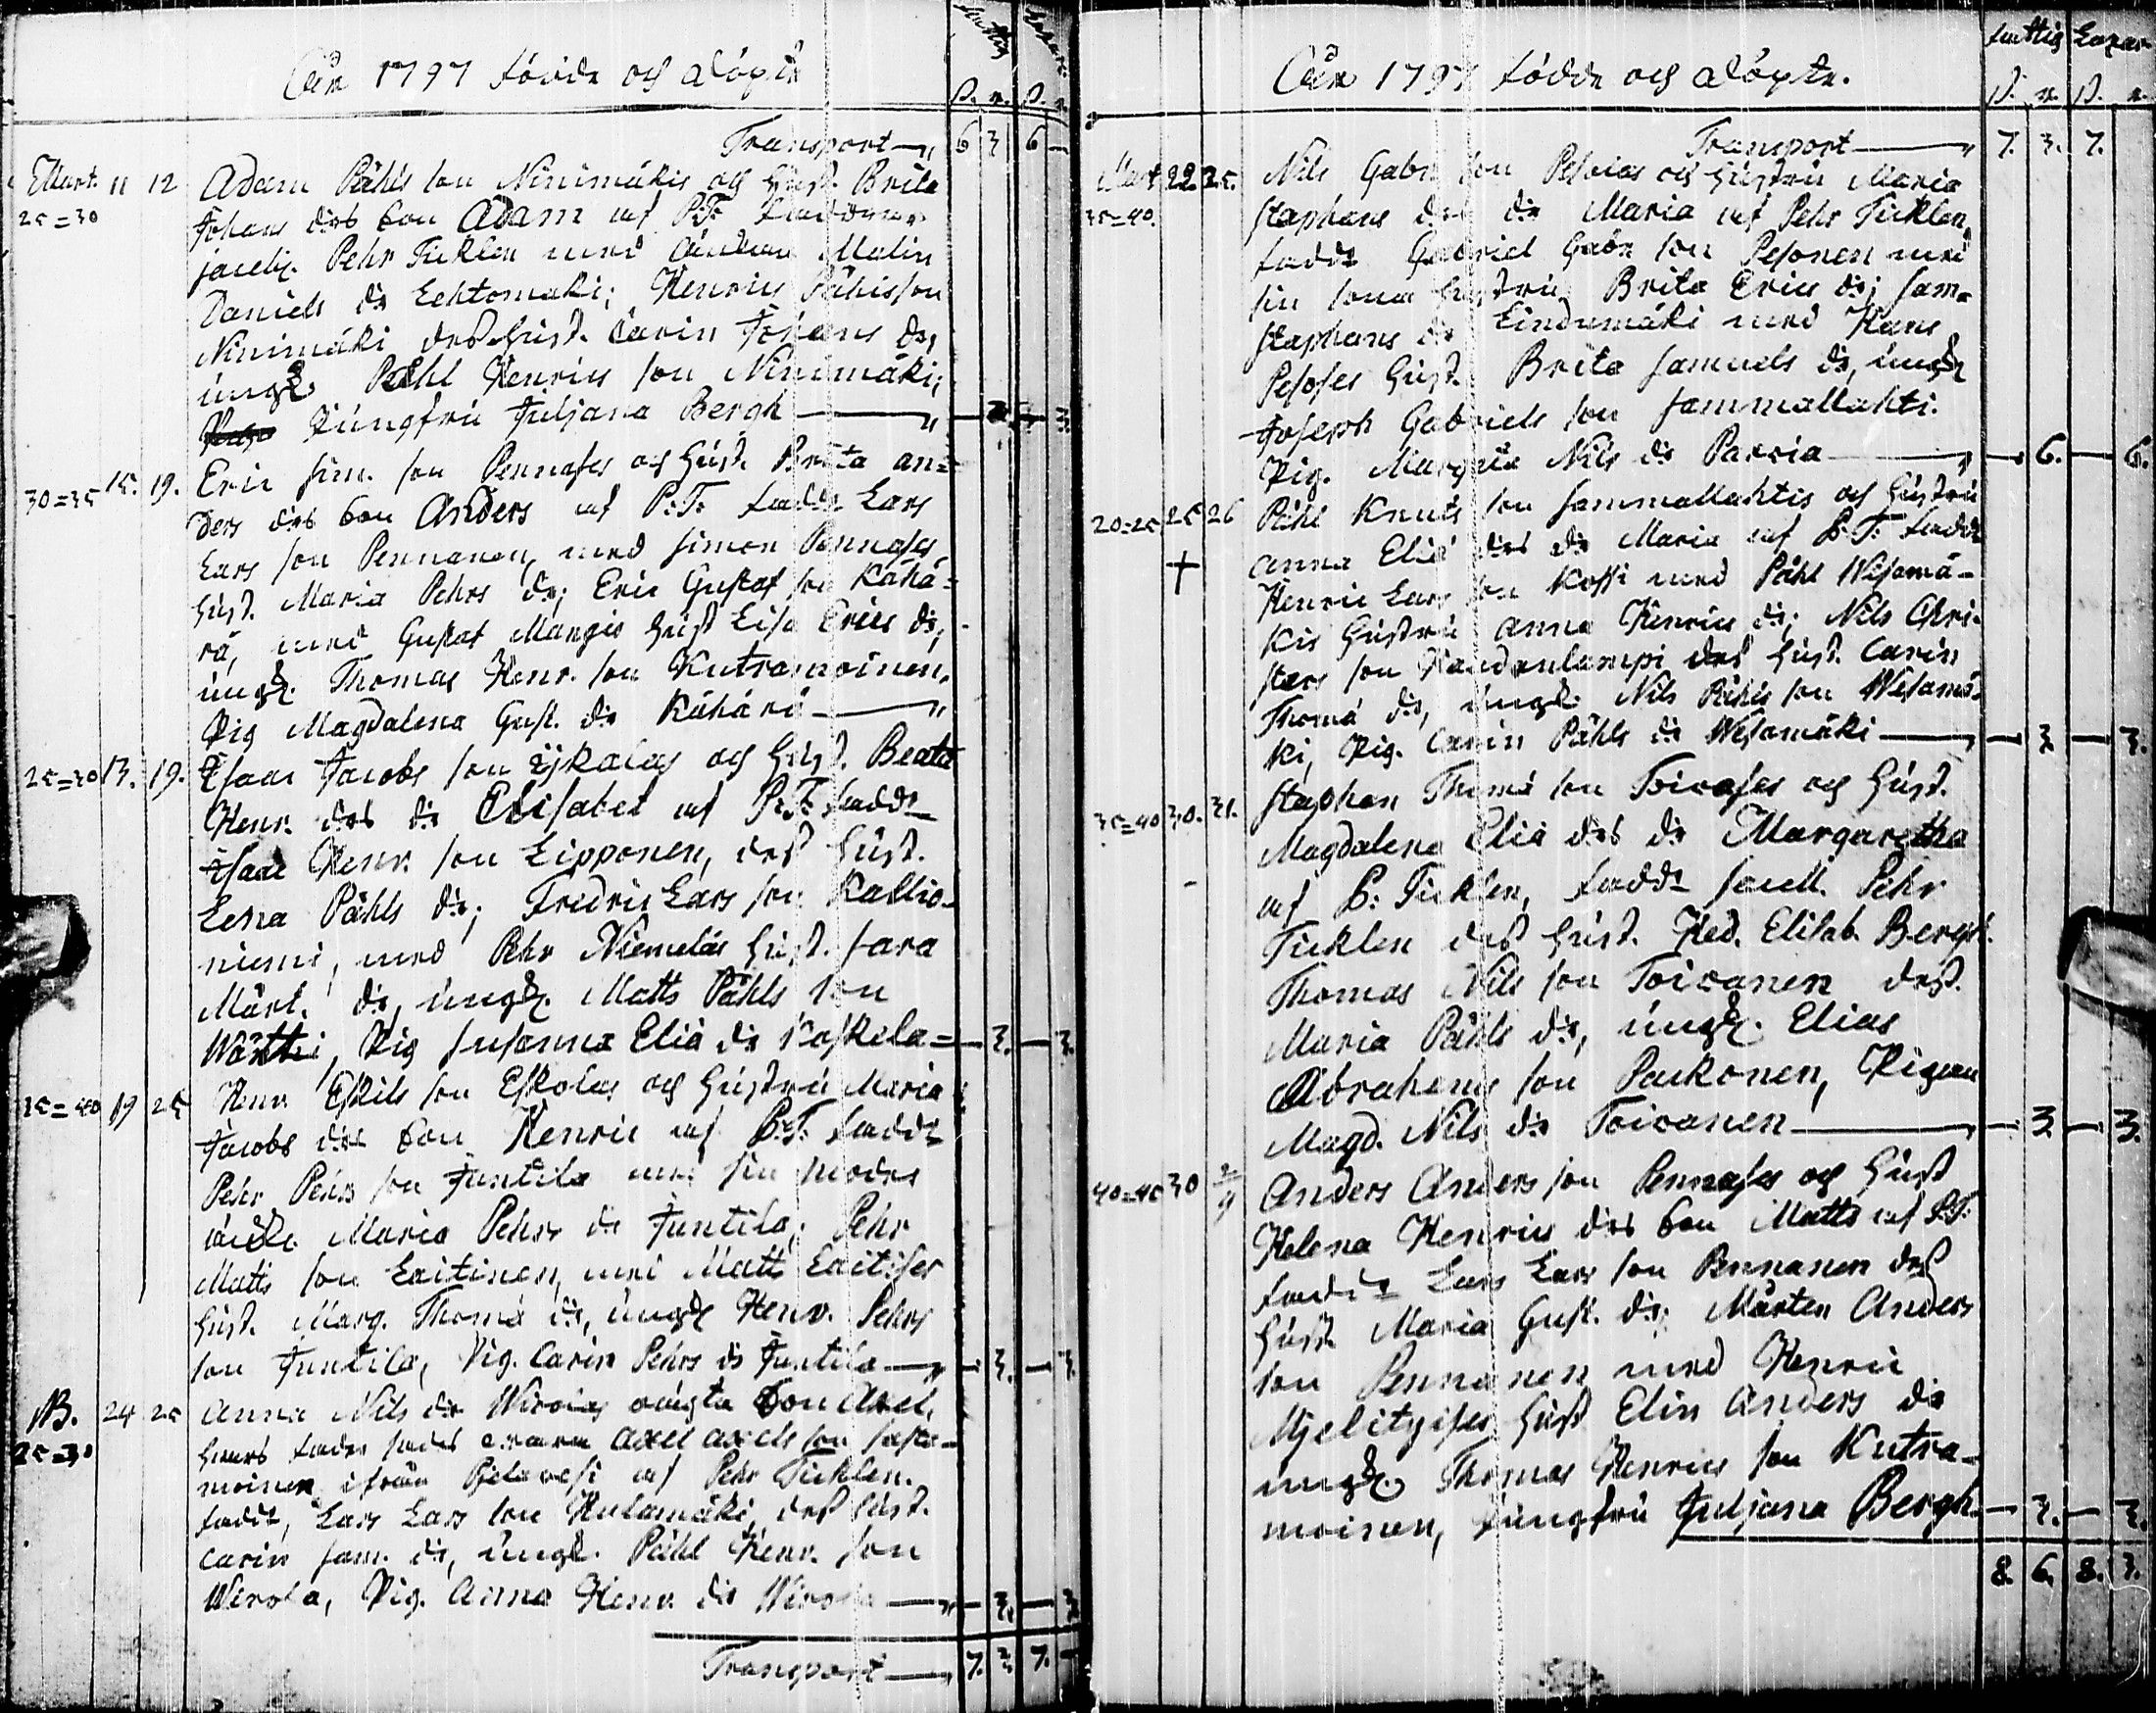 År 1797 födde och döpte
fattig Lazar.
S. r. S. r.
Transport 6 3 6 —
Mart. 11 12 Adam Påhls son Ninimäkis och Hust. Brita
25=30 Johans drs son Adam af P.T. faddrar
jaeli. Pehr Ticklen med Malin
Daniels dr Lehtomäki; Henric Påhlsson
Ninimäki dess hust. Carin Johans dr,
ungk. Påhl Henrics son Ninimäki,
Jungfru Juljana Bergh — 3. — 3
30=35 15. 19. Eric Sim. son Pennases och Hust. Brita An=
ders drs son Anders af P.T. fadd. Lars
Lars son Pennanen, med Simon Pennases
hust. Maria Pehrs dr; Eric Gustaf son Kähä=
rä, med Gustaf Mangis hust Lisa Erics dr,
ungk. Thomas Henr. son Kutramoinen,
Pig Magdalena Gust. dr Kähärä
25=30 13. 19. Isaac Jacobs son Ijkalas och Hust. Beata
Henr. drs dr Elisabet af P.T. fadd
Isaac Henr. son Lipponen, dess hust.
Lena Påhls dr; Fredric Lars son Kallio=
niemi, med Pehr Niemeläs hust. Sara
Mårt. dr, ungk. Matts Påhls son
Wärtti, Pig Susanna Eliä dr Koskela= — 3. — 3.
35=40 19 25 Henr. Eskils son Eskolas och hustru Maria
Jacobs drs son Henric af P.T. fadd
Pehr Pehrs son Juntila med sin moder
Maria Pehrs dr Juntila; Pehr
Matts son Laitinen, med Matts Laitises
hust. Marg. Thomä dr, ungk Henr. Pehrs
son Juntila, Pig. Carin Pehrs dr Juntila — 3. — 3.
NB. 24 25 Anna Nils dr Wirolas oägta son Axel,
25=30 hvars fader sades vara Axel Axels son Sasta=
moinen ifrån Pielavesi af Pehr Ticklen.
fadd, Lars Lars son Hulamäki, dess hust.
Carin Sam. dr, ungk. Påhl Henr. son
Wirola, Pig. Anna Henr. dr Wirola — 3. — 3
Transport 7. 3 7. —
År 1797 födde och döpte.
fattig Lazar
S. r. S. r.
Transport 7. 3. 7.
Mart 22. 25. Nils Gabr. son Pesolas och hustru Maria
35=40. Staphans drs dr Maria af Pehr Ticklen,
fadd Gabriel Gabr. son Pesonen med
sin sons hustru Brita Erics dr; Sam=
Staphans dr Lindumäki med Hans
Pesoses hust. Brita Samuels dr, ungk
Joseph Gabriels son Sammallahti.
Pig. Margeta Nils dr Parvia — 6. — 6.
20=25 25 26 Påhl Knuts son Sammallahtis och hustru
+ Anna Eliä drs dr Maria af P.T. fadd
Henric Lars son Kossi med Påhl Wesamä=
kis hustru Anna Henrics dr; Nils Chri=
sters son Haudanlampi dess hust. Carin
Thomä dr, ungk. Nils Påhls son Wesamä=
ki, Pig. Carin Påhls dr Wesamäki — 3. — 3.
35=40 30. 31. Staphan Thomä son Toivases och hust.
Magdalena Eliä drs dr Margaretha
af P. Ticklen, fadd jaell. Pehr
Ticklen dess hust. Hed. Elisab. Bergh.
Thomas Nils son Toivanen dess.
Maria Påhls dr, ungk. Elias
Abrahams son Paukonen, Pigan
Magd. Nils dr Toivanen — 3. — 3.
40=45 30 2/4 Anders Anders son Pennases och hust
Helena Henrics drs son Matts af P.T.
fadd Lars Lars son Pennanen dess
hust. Maria Gust. dr; Mårten Anders
son Pennanen med Henric
Mjelityises hust Elin Anders dr
ungk. Thomas Henrics son Kutra=
moinen, Jungfru Juljana Bergh — 3. — 3.
8. 6. 8. 3.